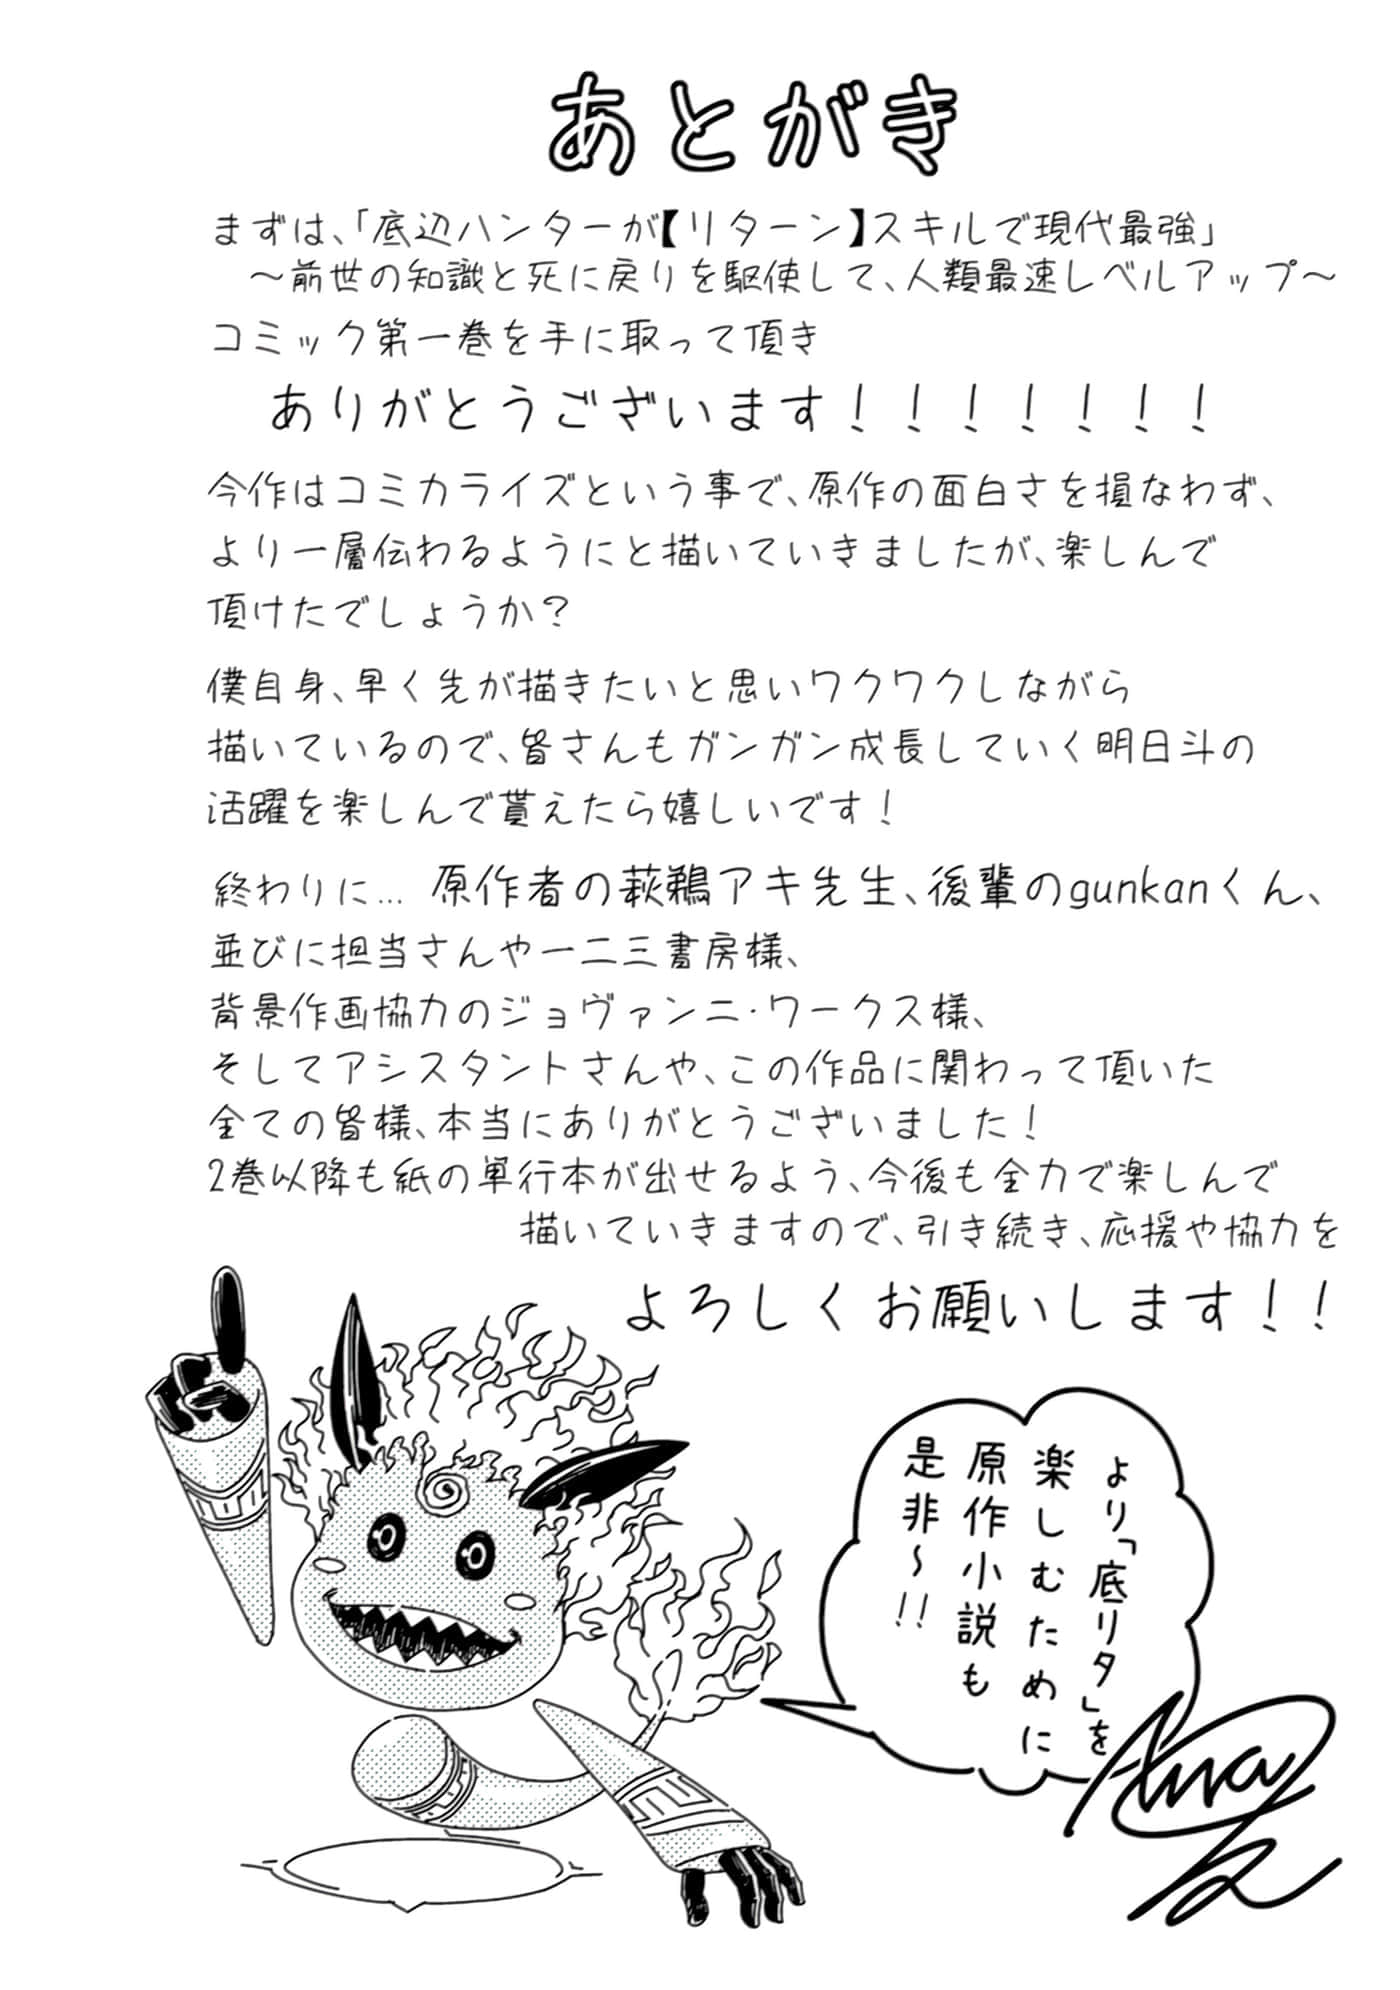 あとがき
まずは、「底辺ハンターが【リターン】スキルで現代最強」
～前世の知識と死に戻りを駆使して、人類最速レベルアップ～
コミック第一巻を手に取って頂き
ありがとうございます！！！！！！！
今作はコミカライズという事で、原作の面白さを損なわず、
より一層伝わるようにと描いていきましたが、楽しんで
頂けたでしょうか？
僕自身、早く先が描きたいと思いワクワクしながら
描いているので、皆さんもガンガン成長していく明日斗の
活躍を楽しんで貰えたら嬉しいです！
終わりに… 原作者の萩鵜アキ先生、後輩のgunkanくん、
並びに担当さんや一二三書房様、
背景作画協力のジョヴァンニ・ワークス様、
そしてアシスタントさんや、この作品に関わって頂いた
全ての皆様、本当にありがとうございました！
2巻以降も紙の単行本が出せるよう、今後も全力で楽しんで
描いていきますので、引き続き、応援や協力を
よろしくお願いします！！
より「底リタ」を
楽しむために
原作小説も
是非～!!